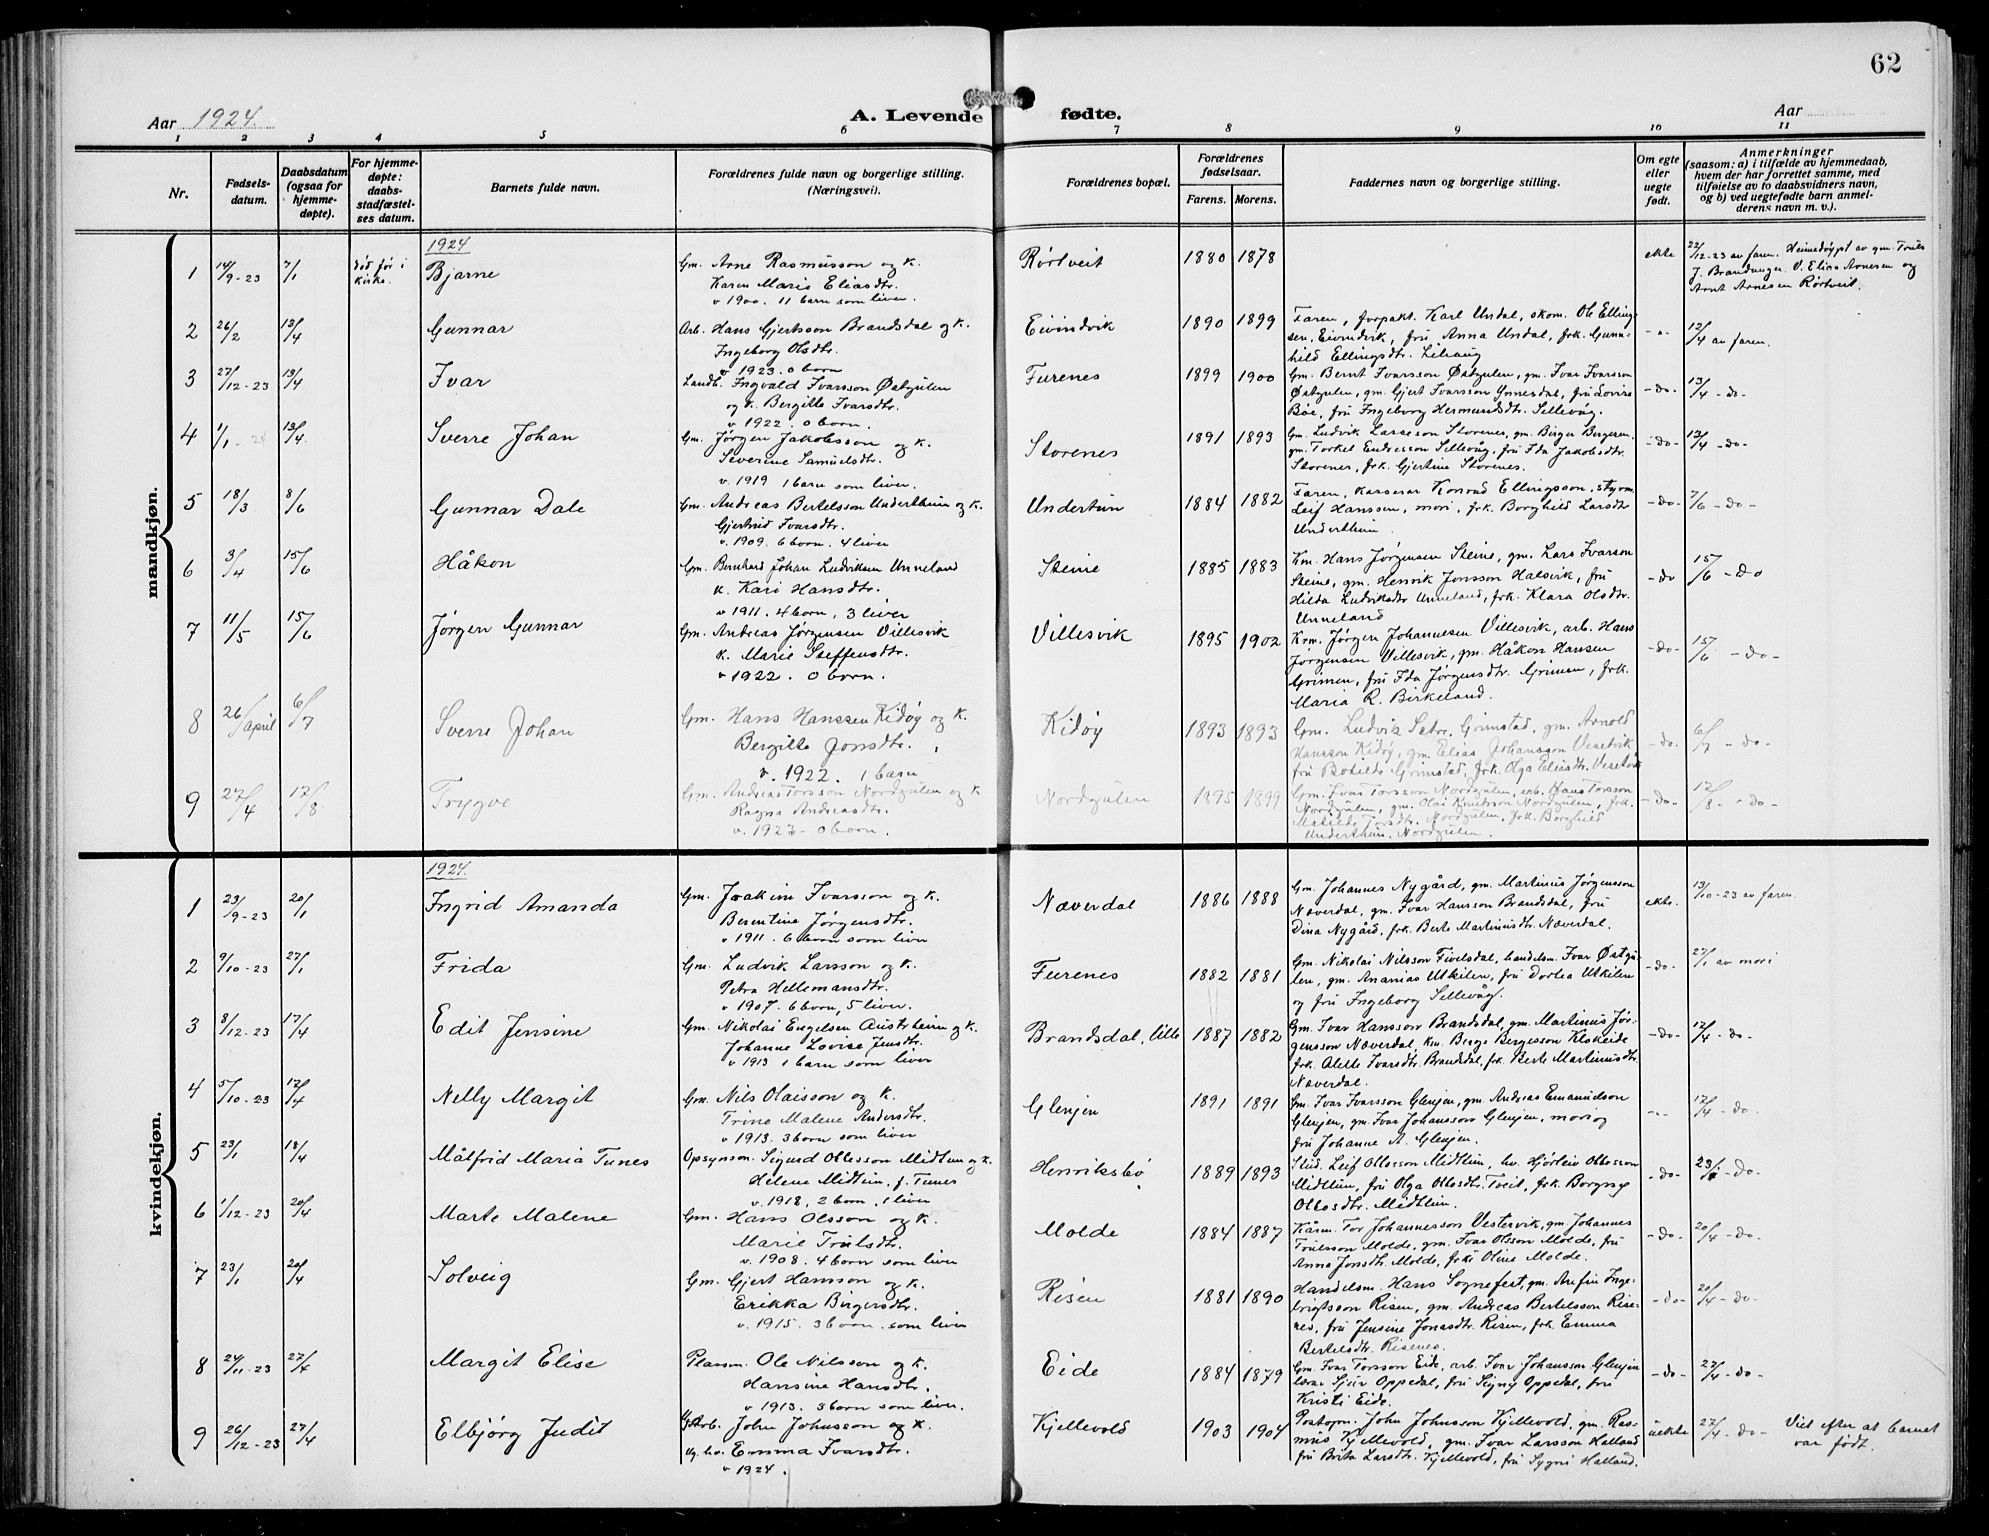 62
Aar 1924. A. Levende fødte. Aar
1 2 3 4 5 6 7 8 9 10 11
Nr. Fødsels-datum. Daabsdatum (ogsaa for hjemme-døpte). For hjemme-døpte: daabs-stadfæstel-ses datum. Barnets fulde navn. Forældrenes fulde navn og borgerlige stilling. (Næringsvei). Forældrenes bopæl. Forældrenes fødselsaar. Farens. Morens. Faddernes navn og borgerlige stilling. Om egte eller uegte født. Anmerkninger (saasom: a) i tilfælde av hjemmedaab, hvem der har forrettet samme, med tilføielse av to daabsvidners navn, og b) ved uegtefødte barn anmel-derens navn m. v.).
mandkjøn.
1924
1 14/9-23 7/1 död før i kirke. Bjarne Gm. Arne Rasmusson og k. Rørtveit 1880 1878 ekte 22/12-23 av faren. Heimedøypt av gm. Truls
Karen Marie Eliasdtr. J. Brandanger. V. Elias Arnesen og
v 1900. 11 barn som liver. Arnt Arnesen Rörtveit.
2 26/2 13/4 Gunnar Arb. Hans Gjertsson Brandsdal og k. Eivindvik 1890 1899 Faren, forpakt. Karl Undal, økom. Ole Elling- 12/4 av faren.
Ingeborg Olsdtr. sen, Eivindvik, fru Anna Undal, frk. Gunn-
v 1923. 0 barn hild Ellingsdtr. Lihaug
3 27/12-23 13/4 Ivar Landb. Ingvald Ivarsson Østgulen Furenes 1899 1900 Gm. Bernt Ivarsson Østgulen, gm. Ivar Ivarsson -do- 13/4 -do-
og k. Bergitte Ivarsdtr. Østgulen, gm. Gjert Ivarsson Ynnesdal, fru Lovise
v 1922. 0 born. Böe, fru Ingeborg Hermundsdtr. Sellevåg.
4 1/1-24 13/4 Sverre Johan Gm. Jørgen Jakobsson og k. Storenes 1891 1893 Gm. Ludvik Lasseson Storenes, gm. Birger Bergersen -do- 12/4 -do-
Severine Samuelsdtr. gm. Torkel Endresson Sellevåg, fru Ida Jakobsdtr
v. 1919 1 barn som liver. Storenes, frk. Gjertine Storenes.
5 18/3 8/6 Gunnar Dale Gm. Andreas Bertelsson Underthun og k. Undertun 1884 1882 Faren, kasserar Konrad Ellingsson, styrm. -do- 7/6 -do-
Gjertrud Ivarsdtr. Leif Hanssen, mori, frk. Borghild Larsdtr
v. 1909. 6 born. 4 liver Underthun.
6 3/4 15/6 Håkon Gm. Bernhard Johan Ludviksen Unneland Steine 1885 1883 Km. Hans Jörgensen Steine, gm. Lars Ivarson -do 15/6 -do
k. Kari Hansdtr. Steine, gm. Henrik Jonsson Halsvik, fru
v 1911. 4 born, 3 liver Hilda Ludviksdtr Unneland, frk. Klara Olsdtr.
Unneland
7 11/5 15/6 Jørgen Gunnar Gm. Andreas Jørgensen Villesvik Villesvik 1895 1902 Krm. Jørgen Johannesen Villesvik, arb. Hans -do- 15/6 -do-
k. Marie Steffensdtr. Jørgensen Villesvik, gm. Håkon Hansen
v 1922. 0 born. Grimen, fru Ida Jørgensdtr. Grimen, frk.
Maria R. Birkeland.
8 26/April 6/7 Sverre Johan Gm. Hans Hanssen Kidøy og k. Kidøy 1893 1893 Gm. Ludvik Sebr. Grimstad, gm. Arnold -do. 6/7 -do-
Bergitte Jonsdtr. Hansson Kidøy, gm. Elias Johansson Vesetvik
v. 1922. 1 barn fru Botilde Grimstad, frk. Olga Eliasdtr. Vesetvik
9 27/4 17/8 Trygve Gm. Andreas Torsson Nordgulen og k Nordgulen 1895 1899 Gm. Ivar Torsson Nordgulen, arb. Hans Torsson -do- 17/8 -do-
Ragna Andreasdtr. Nordgulen, gm. Olai Knutsson Nordgulen, frk.
v. 1923 - 0 born. Matilde Torsdtr. Nordgulen, frk. Borghild
Underthun, Nordgulen.
kvindekjøn.
1924.
1 23/9-23 20/1 Ingrid Amanda Gm. Joakim Ivarsson og k. Næverdal 1886 1888 Gm. Johannes Nygård, gm. Martinius Jörgensson ekte. 13/10-23 av faren.
Berentine Jørgensdtr. Næverdal, gm. Ivar Hansson Brandsdal, fru
v 1911. 6 born som liver Dina Nygård, frk. Berte Martinusdtr. Næverdal.
2 9/10-23 27/1 Frida Gm. Ludvik Larsson og k. Furenes 1882 1881 Gm. Nikolai Nilsson Tivelsdal, handelsm. Ivar Østgu- -do- 27/1 av mori
Petra Hellemansdtr. len, gm. Ananias Utkilen, fru Dortea Utkilen
v 1907. 6 born, 5 liver. og fru Ingeborg Sellevåg.
3 8/12-23 17/4 Edit Jensine Gm. Nikolai Engelsen Austrheim og k. Brandsdal, litle 1887 1882 Gm. Ivar Hansson Brandsdal, gm. Martinus Jör- -do- 12/4 -do-
Johanne Lovise Jensdtr. gensson Næverdal, km. Berge Bergesson Kløkeide
v 1913 1 barn som liver frk. Alette Ivarsdtr. Brandsdal, frk. Berte Martinusdtr.
Næverdal.
4 5/10-23 17/4 Nelly Margit Gm. Nils Olaisson og k. Glenjen 1891 1891 Gm. Ivar Ivarsson Glenjen, gm. Andreas Emanuelson 17/4 -do-
Trine Malene Andersdtr. Glenjen, gm. Ivar Johansson Glenjen, mori og
v 1913. 3 born som liver fru Johanne A. Glenjen.
5 23/1 18/4 Målfrid Maria Tunes Opsynsm. Sigurd Ottesson Midttun og k. Henriksbø 1889 1893 Stud. Leif Ottosson Midttun, hv. Hjörleiv Ottosson -do- -do-
Helene Midttun, f. Tunes Midttun, fru Olga Ottosdtr. Tveit, frk. Borgny
v. 1918, 2 born, 1 liver Ottosdtr. Midttun.
6 1/12-23 20/4 Marte Malene Gm. Hans Olsson og k. Molde 1884 1887 Kårm. Tor Johannesson Vestervik, gm. Johannes -do- 20/4 -do-
Marie Trulsdtr. Trulsson Molde, gm. Ivar Olsson Molde, fru
v 1908. 4 born som liver Anna Jonsdtr. Molde, frk. Oline Molde.
7 23/1 20/4 Solveig Gm. Gjert Hansson og k. Risen 1881 1890 Handelsm. Hans Sognefest, gm. Arefin Inge- -do- 20/4 -do-
Erikka Birgersdtr. brigtsson Risen, gm. Andreas Bertelsson Rise-
v. 1915. 3 born som liver nes, fru Jensine Jonasdtr. Risen, frk. Emma
Bertelsdtr. Risenes.
8 24/11-23 27/4 Margit Elise Plassm. Ole Nilsson og k. Eide 1884 1879 Gm. Ivar Torsson Eide, arb. Ivar Johansson Glenjen -do- 27/4 -do-
Hansine Hansdtr. lærar Sjur Oppedal, fru Signy Oppedal, fru
v 1913. 3 born som liver. Kristi Eide.
9 26/12-23 27/4 Elbjörg Judit Arb. John Johnsson og k. Kjellevold 1903 1904 Postopn. John Johnsson Kjellevold, gm. Ras- uekte 27/4 -do- Viet efter at barnet
Emma Ivarsdtr. mus Kjellevold, gm. Ivar Larsson Halland var född.
v 1924. fru Brita Larsdtr. Kjellevold, fru Sygni Halland.